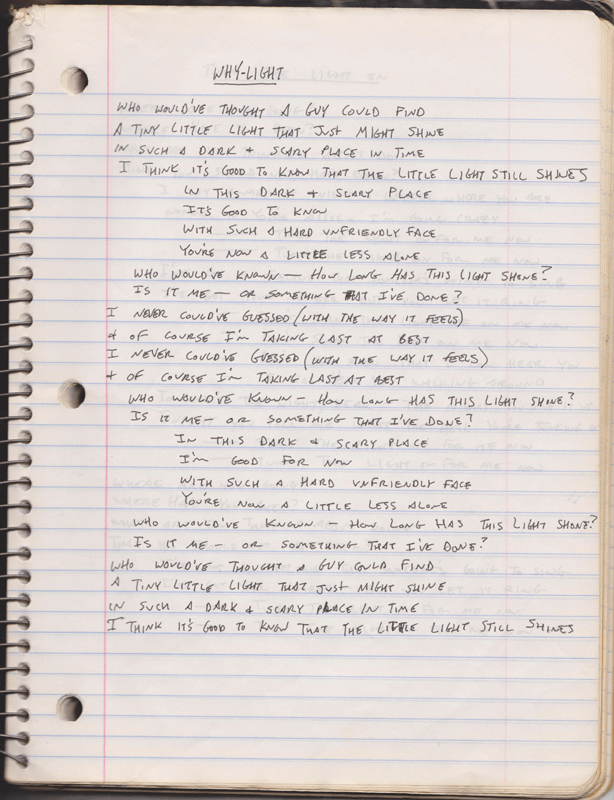 WHY-LIGHT
WHO WOULD'VE THOUGHT A GUY COULD FIND
A TINY LITTLE LIGHT THAT JUST MIGHT SHINE
IN SUCH A DARK & SCARY PLACE IN TIME
I THINK IT'S GOOD TO KNOW THAT THE LITTLE LIGHT STILL SHINES
IN THIS DARK & SCARY PLACE
IT'S GOOD TO KNOW
WITH SUCH A HARD UNFRIENDLY FACE
YOU'RE NOW A LITTLE LESS ALONE
WHO WOULD'VE KNOWN — HOW LONG HAS THIS LIGHT SHONE?
IS IT ME — OR SOMETHING THAT I'VE DONE?
I NEVER COULD'VE GUESSED (WITH THE WAY IT FEELS)
& OF COURSE I'M TAKING LAST AT BEST
I NEVER COULD'VE GUESSED (WITH THE WAY IT FEELS)
& OF COURSE I'M TAKING LAST AT BEST
WHO WOULD'VE KNOWN — HOW LONG HAS THIS LIGHT SHONE?
IS IT ME — OR SOMETHING THAT I'VE DONE?
IN THIS DARK & SCARY PLACE
I'M GOOD FOR NOW
WITH SUCH A HARD UNFRIENDLY FACE
YOU'RE NOW A LITTLE LESS ALONE
WHO WOULD'VE KNOWN — HOW LONG HAS THIS LIGHT SHONE?
IS IT ME — OR SOMETHING THAT I'VE DONE?
WHO WOULD'VE THOUGHT A GUY COULD FIND
A TINY LITTLE LIGHT THAT JUST MIGHT SHINE
IN SUCH A DARK & SCARY PLACE IN TIME
I THINK IT'S GOOD TO KNOW THAT THE LITTLE LIGHT STILL SHINES